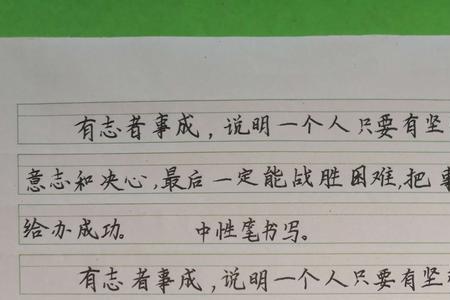 有志者事成，说明一个人只要有坚
意志和决心，最后一定能战胜困难，把
给办成功。 中性笔书写。
有志者事成，说明一个人只要有坚